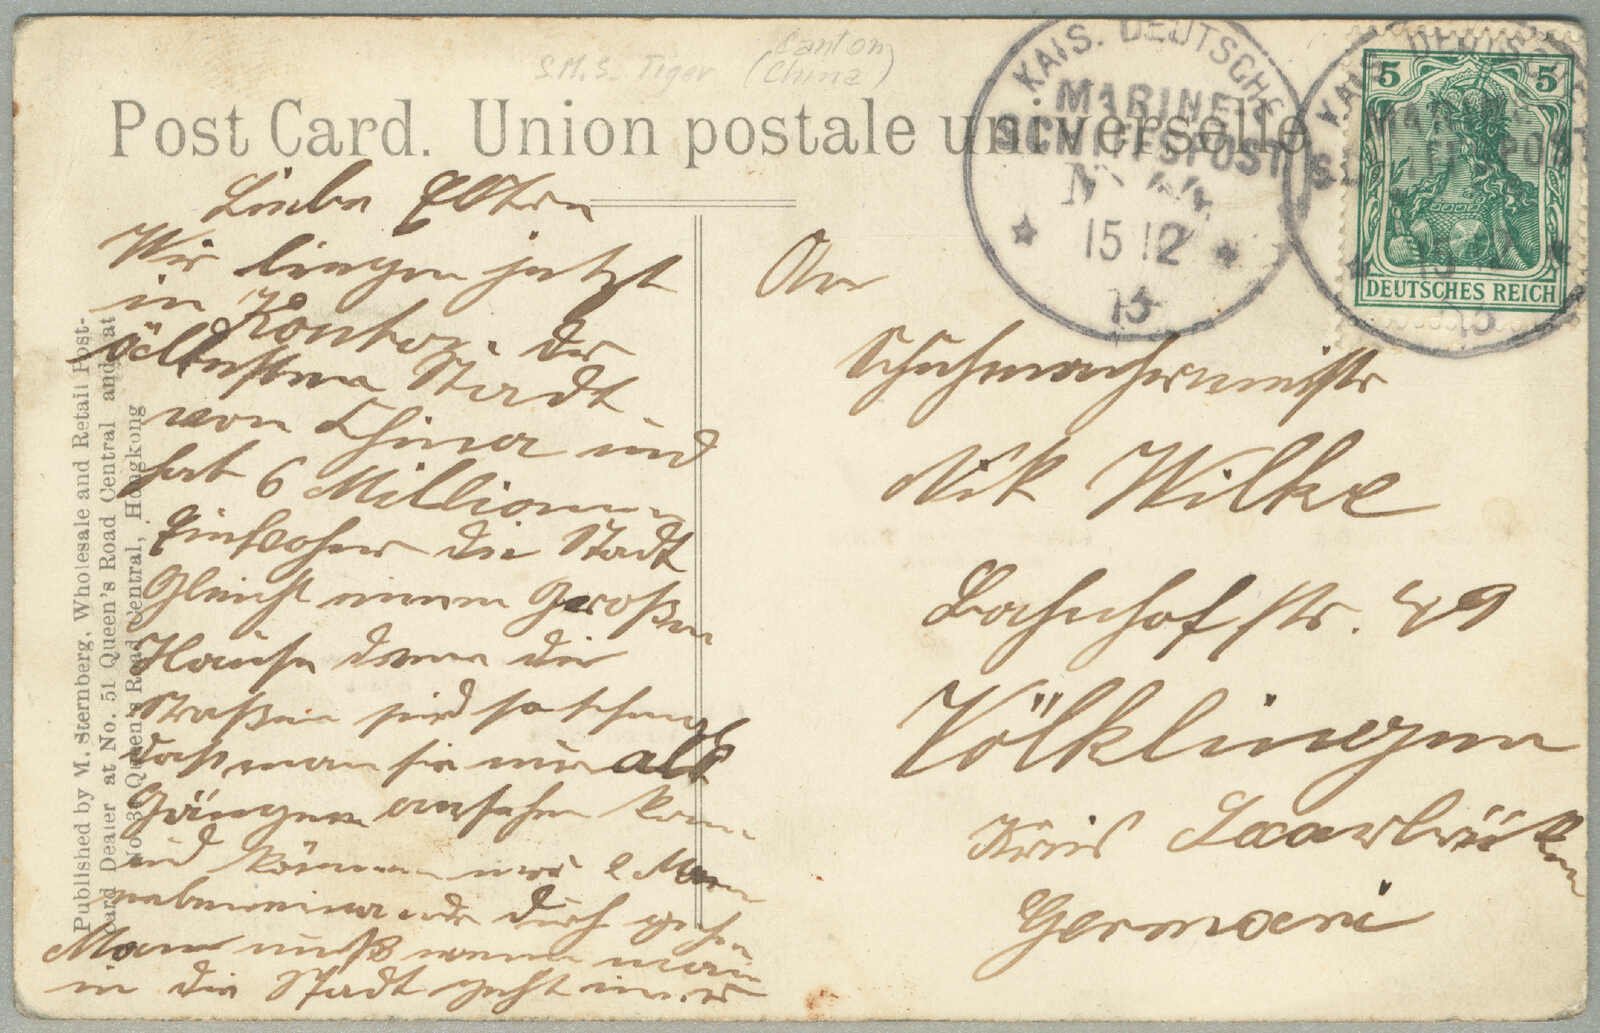 S.M.S. Tiger (Canton
China)
Post Card. Union postale universelle
KAIS. DEUTSCHE
MARINE-
SCHIFFSPOST
No 44
15 12
13
5 5
DEUTSCHES REICH
Liebe Eltern
Wir liegen jetzt
in Konton. der
ältesten Stadt
von China und
hat 6 Millionen
Einwohner die Stadt
Gleicht einem Großen
Hause denn die
Straßen sind so schmal
daß man sie nur als
Gängen ansehen kann
und können nur 2 Mann
nebeneinander durch gehen
Man muß wenn man
in die Stadt geht immer
An
Schuhmachermeister
Nik Wilke
Bahnhof str. 49
Völklingen
Kreis Saarbrücken
Germani
Published by M. Sternberg, Wholesale and Retail Post-
card Dealer at No. 51 Queen's Road Central and at
Queen's Road Central, Hongkong